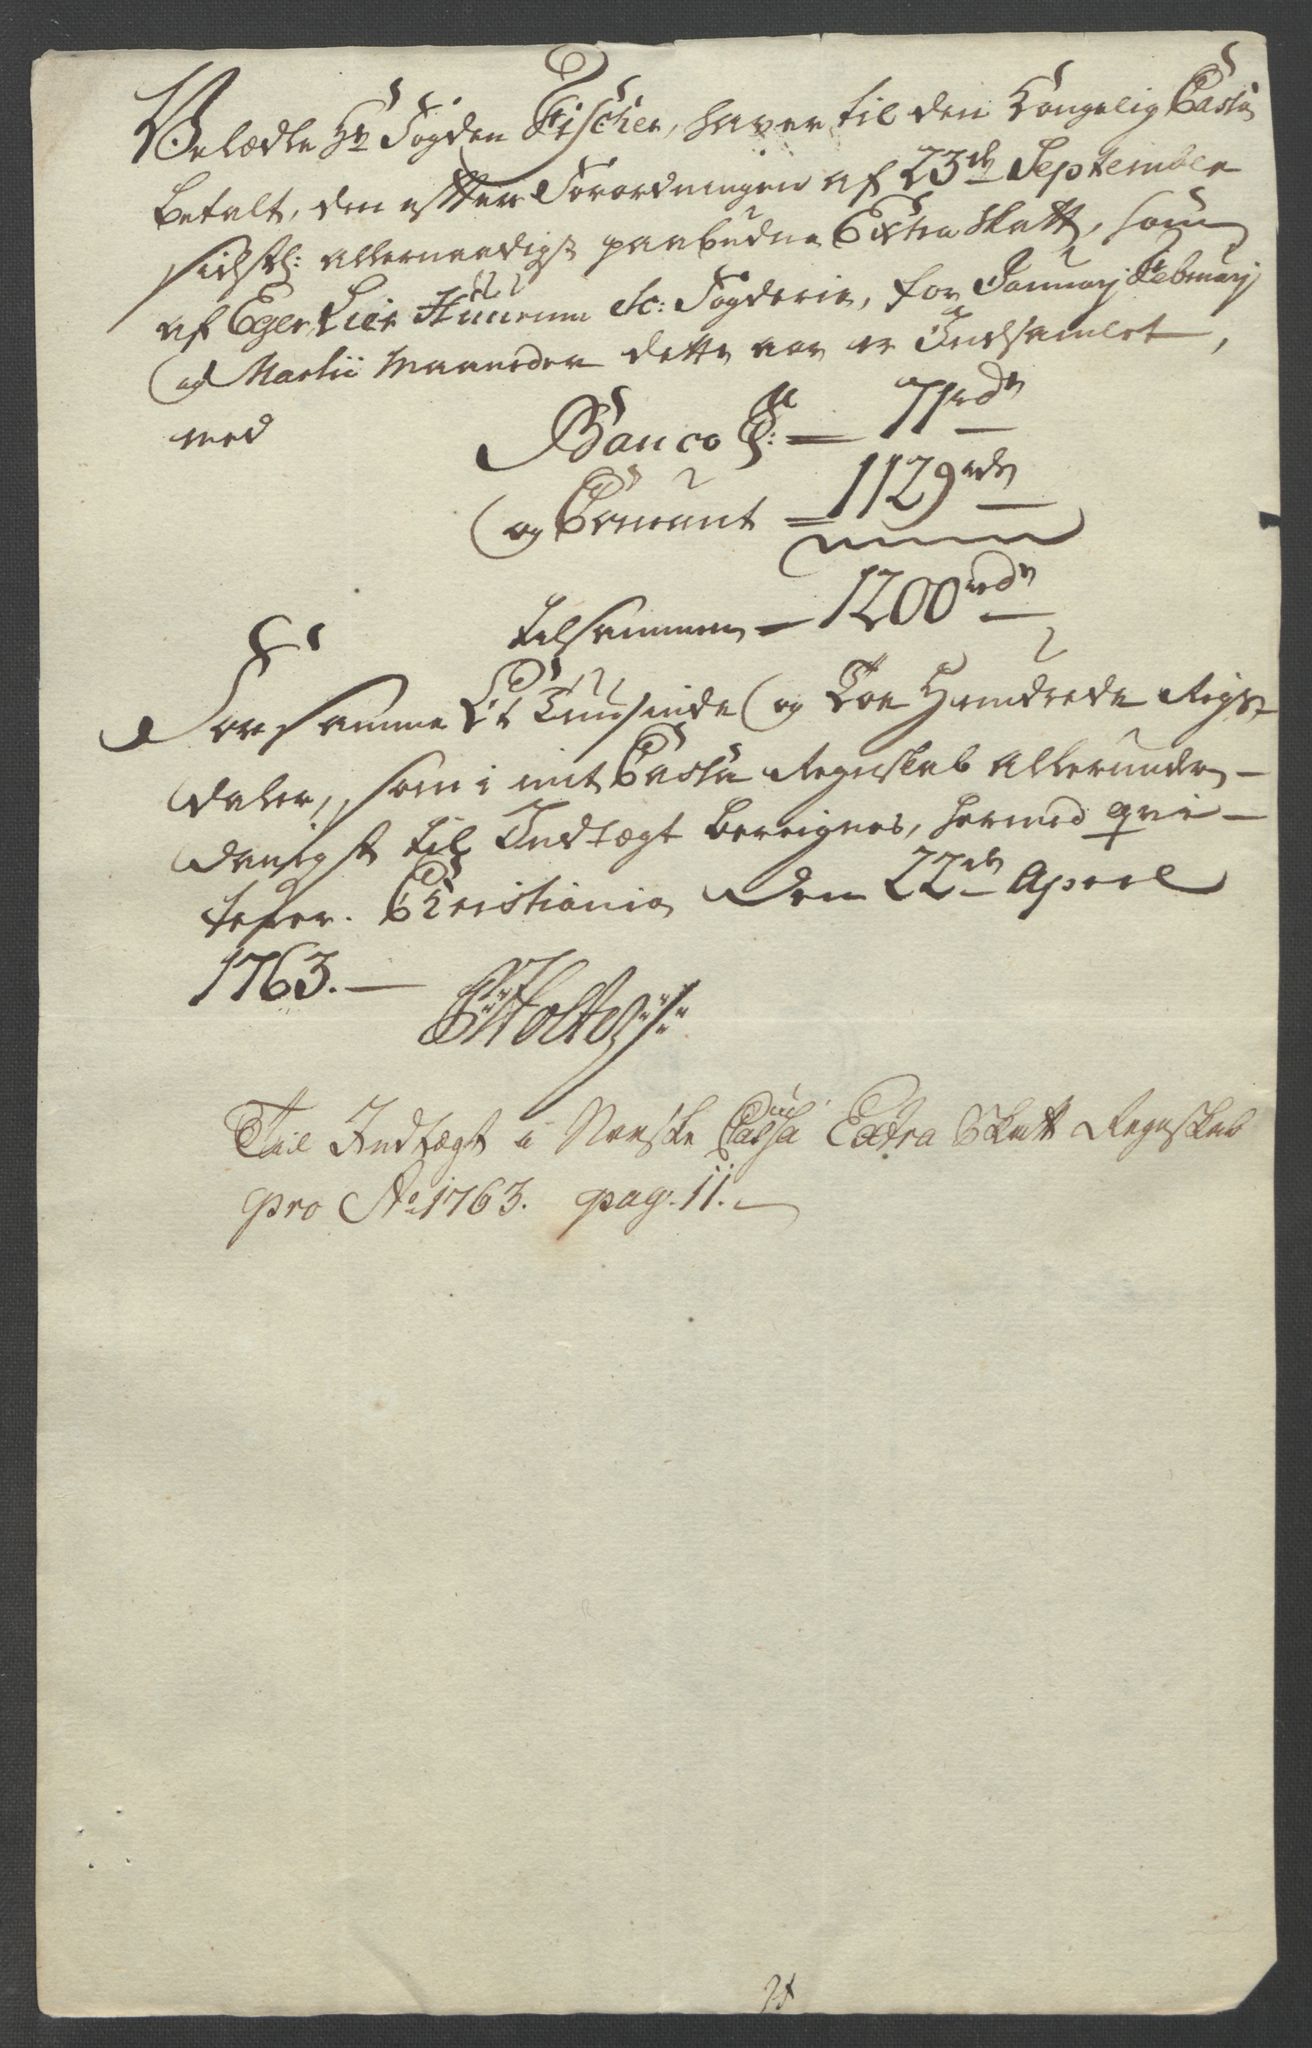 Velædle Hr Fogden Fischer, haver til den Kongelig Cassa
betalt, den efter Forordningen af 23de September
sidstl: allernaadigst paabudne Extra Skatt, som
af Eger Lier Hurum &c: Fogderie, for Januarj Februarj
og Martii Maaneder dette aar er Indsamlet,
med
Banco S: = 71rdr
og Courant = 1129rdr
tilsammen = 1200rdr
For samme Et Tusinde og Toe Hundrede Rigs-
daler, som i mit Cassa Regnskab allerunder-
danigst til Indtægt beregnes, hermed qvi-
terer. Christiania den 22de April
1763.
Holte
Til Indtægt i Norske Cassa Extra Skatt Regnskab
pro Ao 1763. pag: 11.